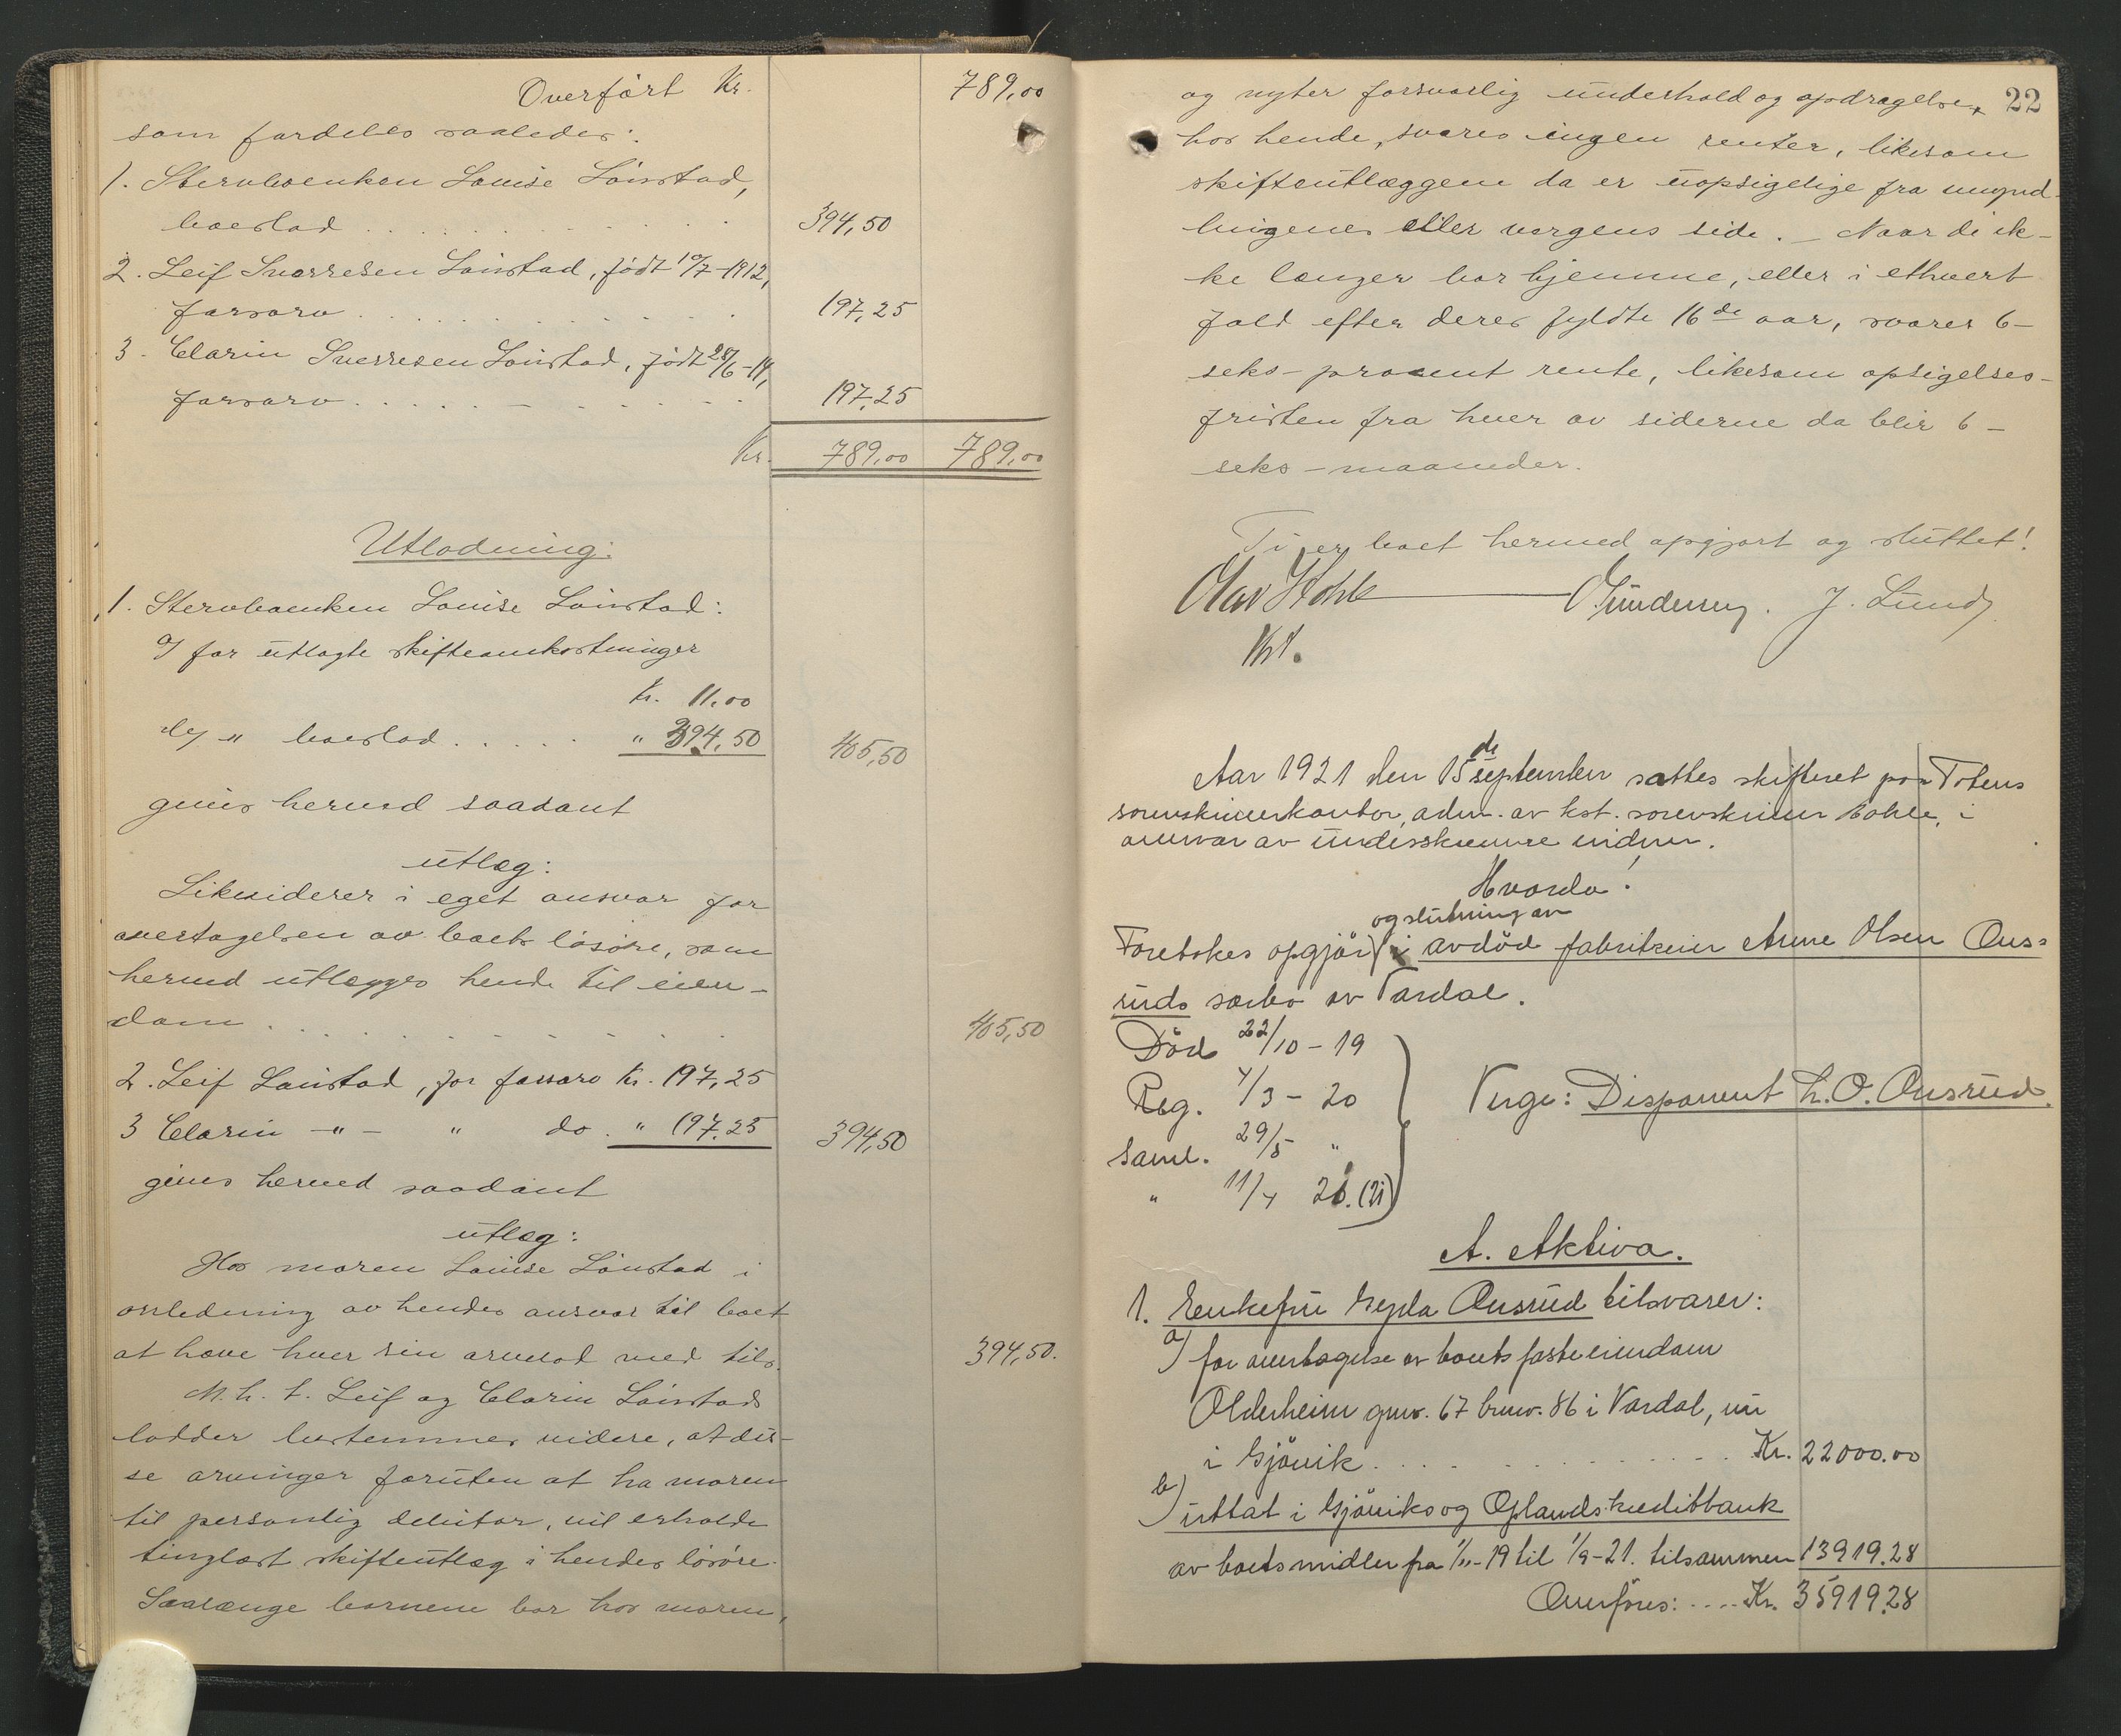 Overført Kr. 789,00
som fordeles saaledes:
1. Stervboenken Louise Lönstad,
boeslod . . . . . . . . . . 394,50
2. Leif Sverresen Lönstad, født 10/7-1912,
farsarv . . . . . . . . . . 197,25
3. Clarin Sverresen Lönstad, født 28/6-14,
farsarv . . . . . . . . . . 197,25
Kr. 789,00 789,00
Utlodning:
1. Stervboenken Louise Lönstad:
a/ for utlagte skifteomkostninger
Kr. 11.00
b/ " boeslod . . . . . " 394,50 405,50
gives herved saadant
utlæg:
Likviderer i eget ansvar for
overtagelsen av boets løsøre, som
herved utlægges hende til eien-
dom . . . . . . . . . . 405,50
2. Leif Lönstad, for farsarv Kr. 197,25
3 Clarin -"- " do. " 197,25 394,50
gives herved saadant
utlæg:
Hos moren Louise Lönstad i
anledning av hendes ansvar til boet
at hæve hver sin arvelod med tils. 394,50.
M. h. t. Leif og Clarin Lönstads
lodder bestemmes videre, at dis-
se arvinger foruten at ha moren
til personlig debitor, vil erholde
tinglæst skifteutlæg i hendes løsøre.
Saalænge barnene bor hos moren,
22
og nyter forsvarlig underhold og opdragelse
hos hende, svares ingen renter, likesom
skifteutlæggene da er uopsigelige fra mynd-
lingenes eller vergens side. - Naar de ik-
ke længer bor hjemme, eller i ethvert
fald efter deres fyldte 16de aar, svares 6-
seks-procent rente, likesom opsigelses-
fristen fra hver av siderne da blir 6-
seks-maaneder.
Ti er boet hermed opgjort og sluttet!
Olav Kohle J. Lund
Kst.
Aar 1921 den 15de september sattes skifteret paa Totens
sorenskriverkontor, adm. av kst. sorenskriver Kohle, i
overvær av underskrevne vidner.
Hvorda!
og slutning av
Foretokes opgjör i avdöd fabrikeier Arne Olsen Ons=
ruds særbo av Vardal.
Död 22/10-19
Reg. 4/3-20
Saml. 29/5 "
" 11/4 20.(21)
Verge: Disponent L. O. Onsrud.
A. Aktiva.
1. Enkefru Hyda Onsrud tilsvarer:
a) for overtagelse av boets faste eiendom
Olderheim gnr. 67 brnr. 86 i Vardal, nu
i Gjövik . . . . . . . . . . Kr. 22000.00
b) uttat i Gjöviks og Oplands kreditbank
av boets midler fra 1/11-19 til 1/9-21. tilsammen 13919.28
Overföres: .... Kr. 35919.28